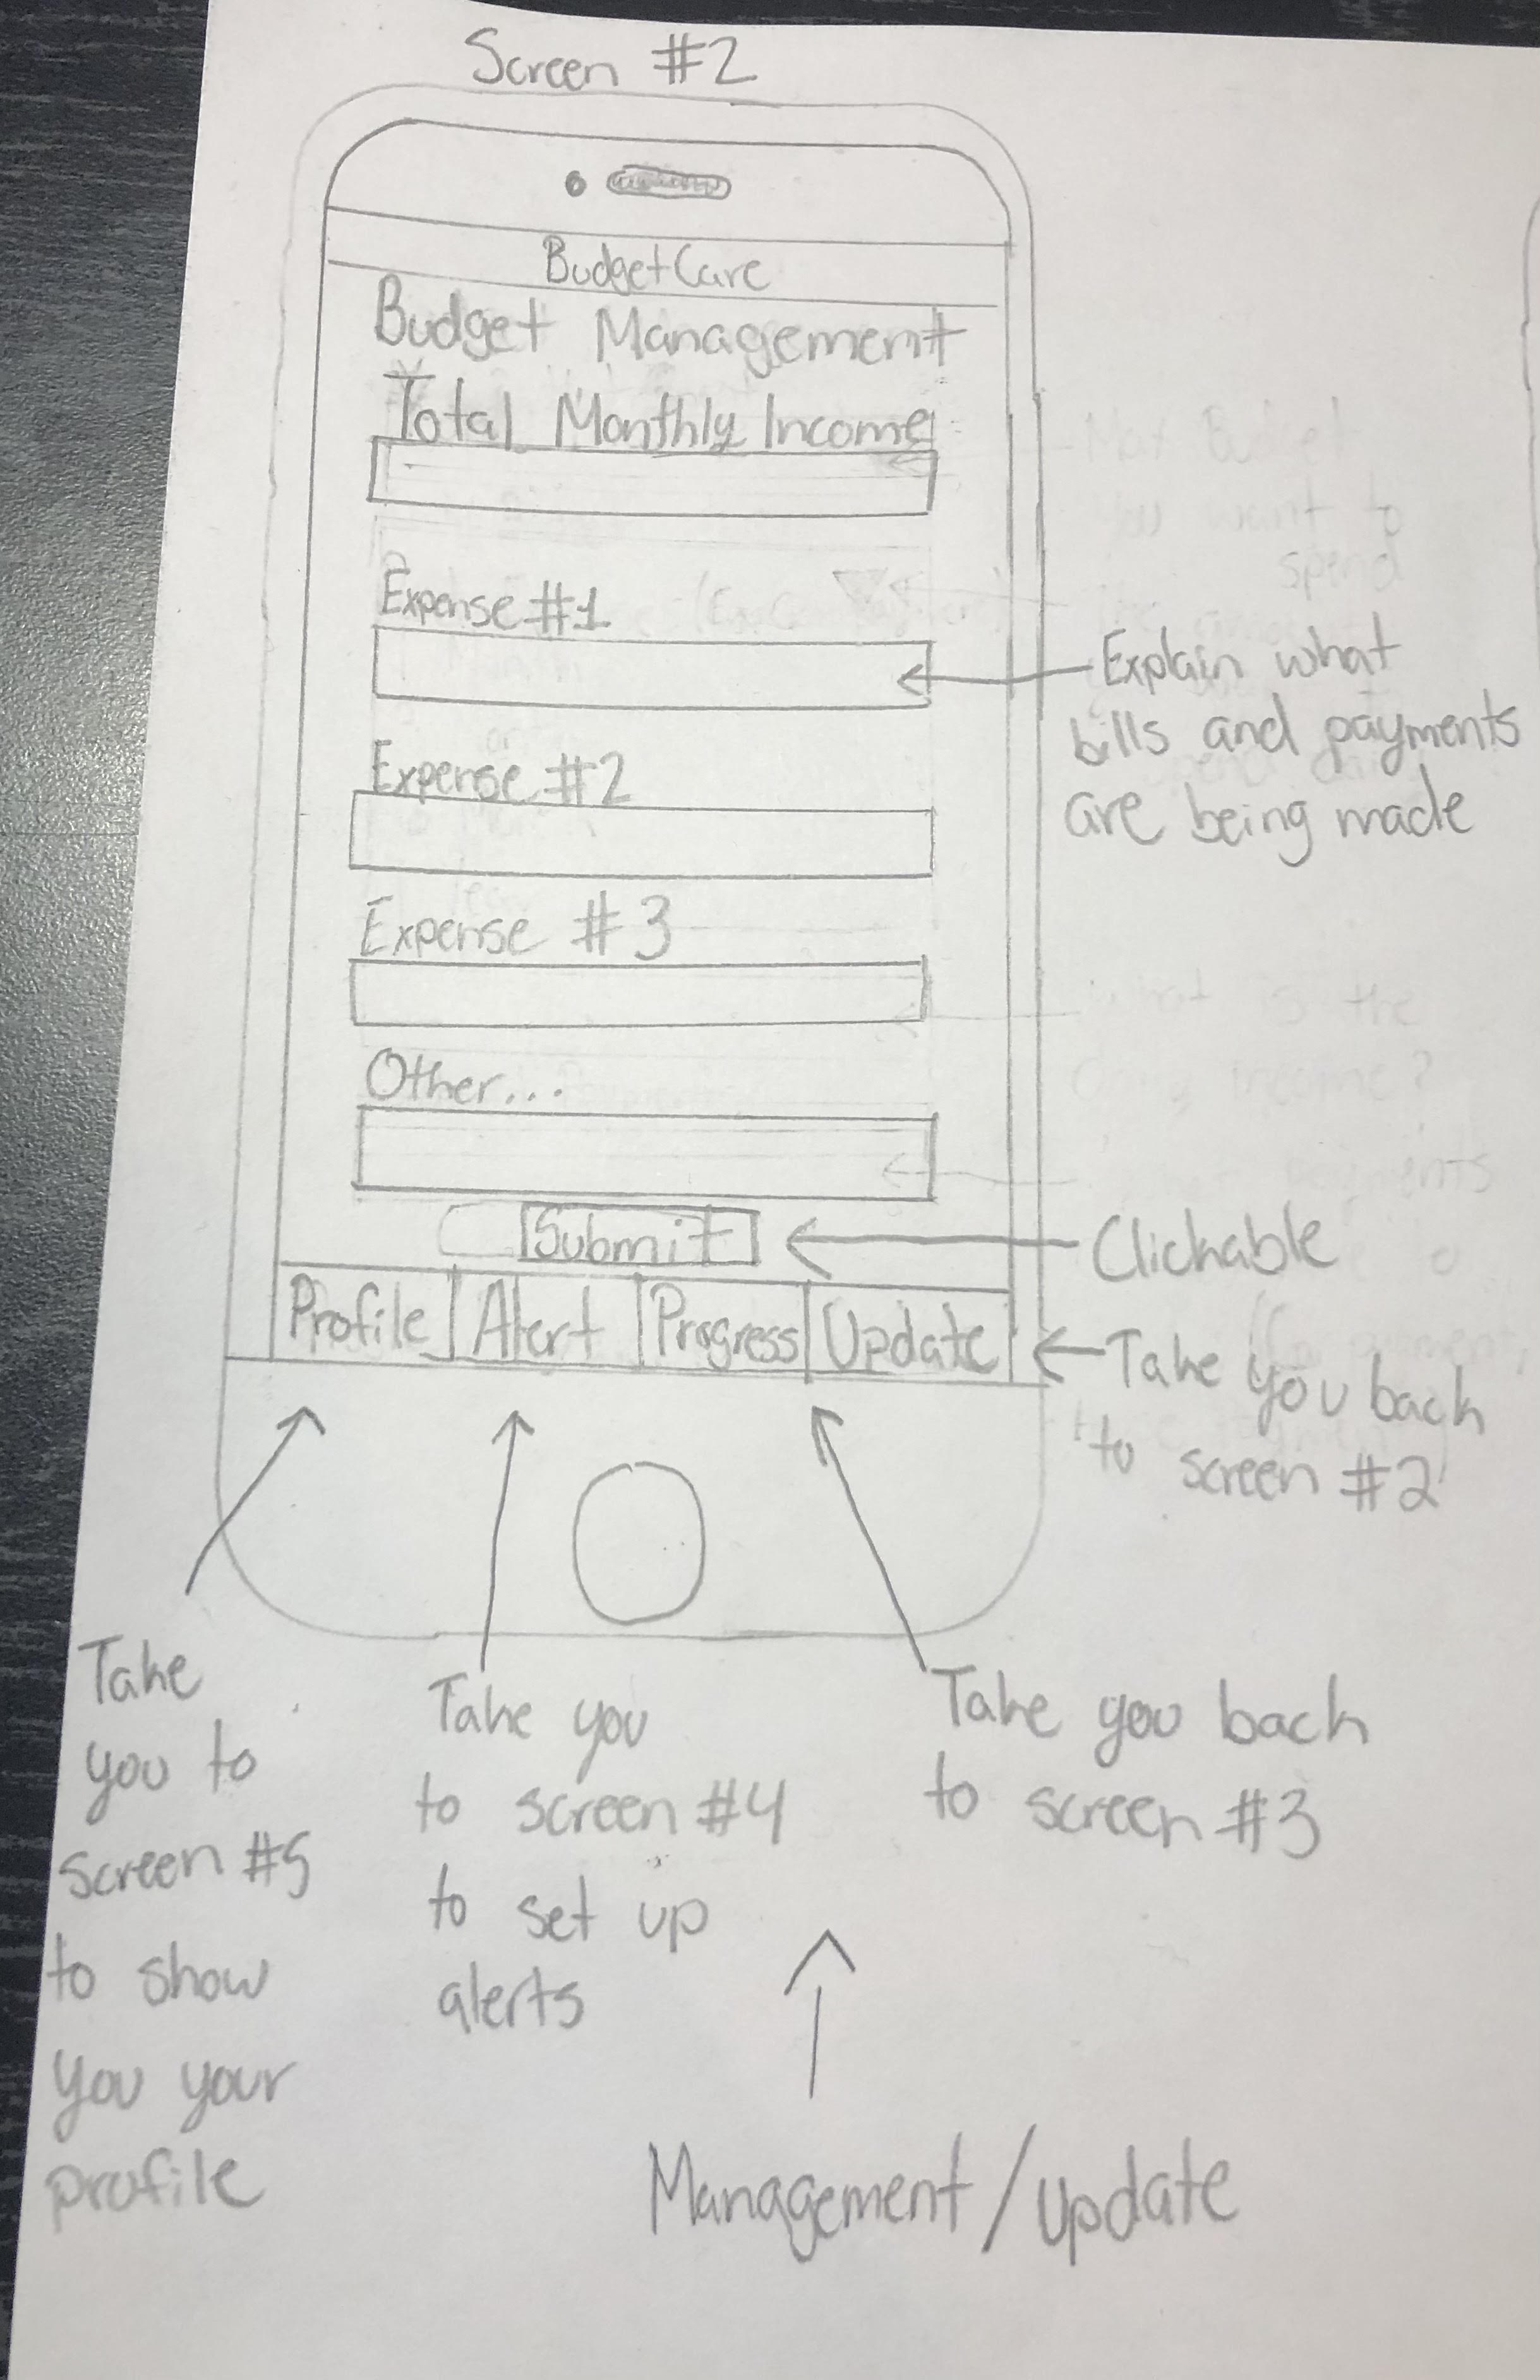 Screen #2
BudgetCare
Budget Management
Total Monthly Income
Expense #1
Explain what
bills and payments
are being made
Expense #2
Expense #3
Other...
Submit
Clickable
Profile
Alert
Progress
Update
Take you back
to screen #2
Take
you to
screen #5
to show
you your
profile
Take you
to screen #4
to set up
alerts
Take you back
to screen #3
Management/update
you want to
spend
what is the
income?